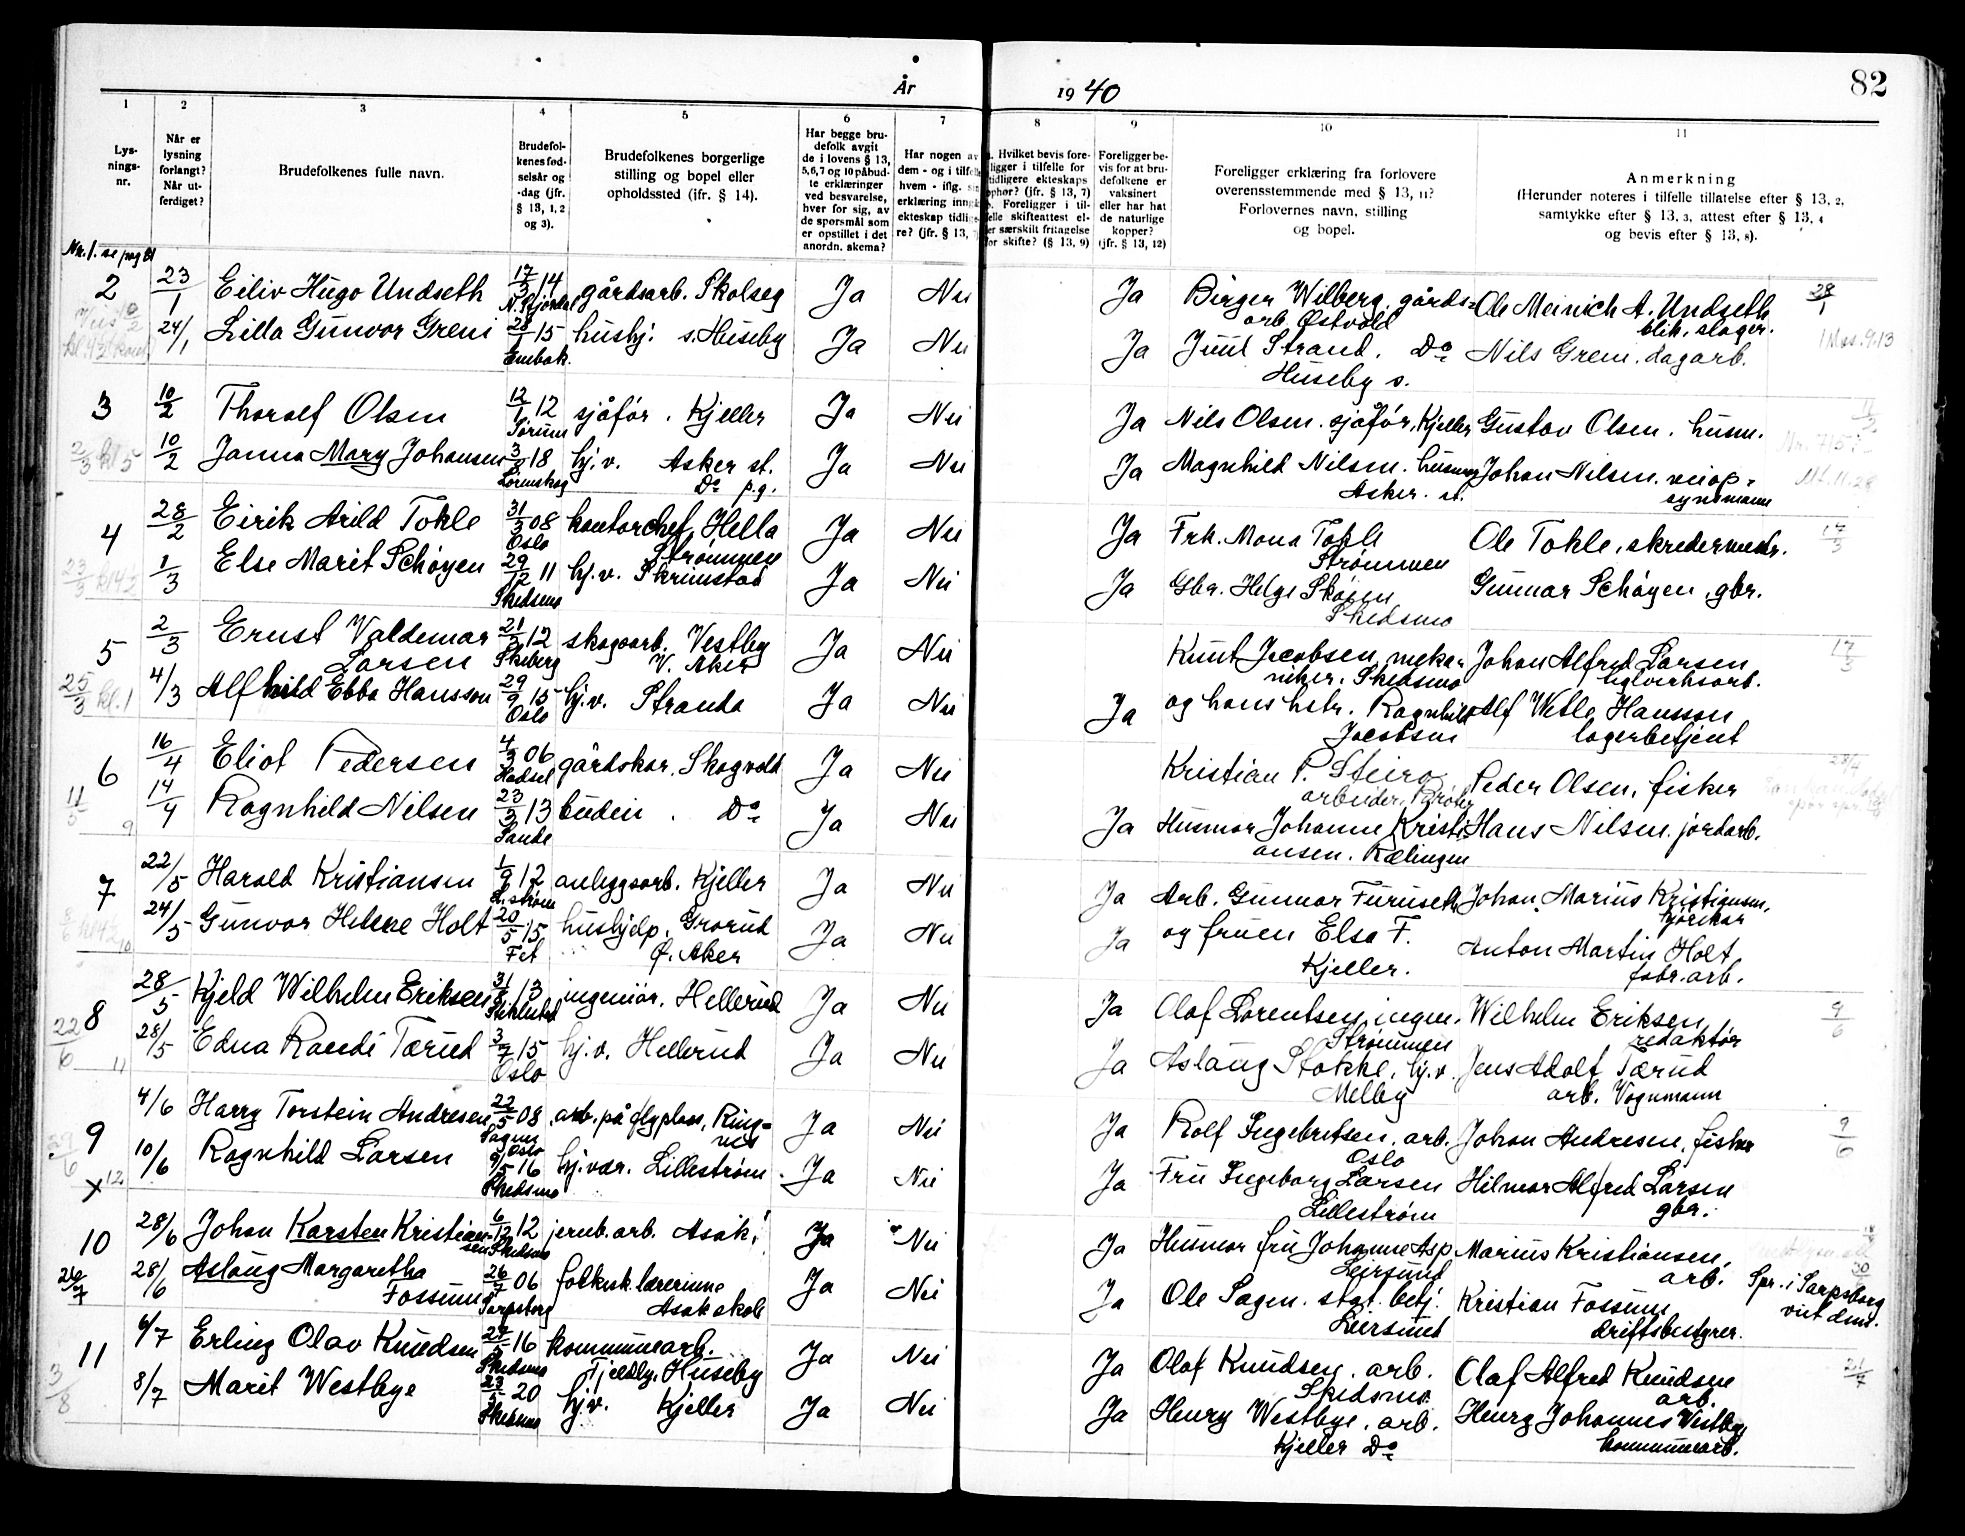 82
År 1940
1 2 3 4 5 6 7 8 9 10 11
Lys-
nings-
nr.
Når er
lysning
forlangt?
Når ut-
ferdiget?
Brudefolkenes fulle navn.
Brudefol-
kenes fød-
selsår og
-dag (jfr.
§ 13, 1, 2
og 3).
Brudefolkenes borgerlige
stilling og bopel eller
opholdssted (ifr. § 14).
Har begge bru-
defolk avgit
de i lovens § 13,
5,6,7 og 10 påbud-
te erklæringer
ved besvarelse,
hver for sig, av
de spørsmål som
er opstillet i det
anordn. skema?
Har nogen av
dem - og i tilfelle
hvem - iflg. sin
erklæring inngått
ekteskap tidlige-
re? (jfr. § 13,
a. Hvilket bevis fore-
ligger i tilfelle for
tidligere ekteskaps
ophør? (jfr. § 13, 7)
b. Foreligger i til-
felle skifteattest el-
er særskilt fritagelse
for skifte? (§ 13, 9)
Foreligger be-
vis for at bru-
defolkene er
vaksinert
eller har hat
de naturlige
kopper?
(jfr. § 13, 12)
Foreligger erklæring fra forlovere
overensstemmende med § 13, 11?
Forlovernes navn, stilling
og bopel.
Anmerkning
(Herunder noteres i tilfelle tillatelse efter § 13, 2,
samtykke efter § 13, 3, attest efter § 13, 4
og bevis efter § 13, 8).
Nr. 1. se pag 81
2 23/1 Eiliv Hugo Undseth 17/3 14 gårdsarb. Skolseg Ja Nei Ja Birger Wilberg, gårds- Ole Meinich A. Undseth 28/1
arb. Østvold blik. slager.
24/1 Lilla Gunvor Greni 28 15 hushj. s. Huseby Ja Nei Ja Juul Strand. Do Nils Greni. dagarb. 1 Mos. 9.13
Enebak Huseby s.
3 10/2 Thoralf Olsen 12/1 12 sjåfør. Kjeller Ja Nei Ja Nils Olsen. sjåfør, Kjeller Gustav Olsen. husm. 11/2
Sørum
2/3 kl 5 10/2 Janna Mary Johansen 3/8 18 hj.v. Asker st. Ja Nei Ja Magnhild Nilsen. husmor Johan Nilsen. veiop-
Lørenskog Do p.g. Asker. st. synsmann
4 28/2 Eirik Arild Tokle 31/3 08 kontorchef, Hella Ja Nei Ja Frk. Mona Tokle Ole Tokle, skredermestr. 17/3
Oslo Strømmen Strømmen
23/3 1/3 Else Marit Schøyen 29/12 11 hj.v. Skrimstad Ja Nei Ja Gbr. Helge Skøien Gunnar Schøyen, gbr.
Skedsmo Skedsmo
5 2/3 Ernst Valdemar 21/3 12 skogsarb. Vestby Ja Nei Knut Jacobsen, meka- Johan Alfred Larsen 17/3
Larsen Skiberg V. Aker niker. Skedsmo teglverksarb.
25/3 kl. 1 4/3 Alfhild Ebba Hansson 29/9 15 hj.v. Stranda Ja Nei Ja og hans hstr. Ragnhild Alf Wetle Hansson
Oslo Jacobsen lagerbetjent
6 16/4 Eliot Pedersen 4/3 06 gårdskar. Skogvold Ja Nei Kristian P. Steiro Peder Olsen, fisker 28/4
Hadsel arbeider,
11/5 14/4 Ragnhild Nilsen 23/3 13 budeie. Do Ja Nei Ja Husmor Johanne Kristi- Hans Nilsen. jordarb.
9 Sande ansen. Rælingen
7 22/5 Harald Kristiansen 1/9 12 anleggsarb. Kjeller Ja Nei Ja Arb. Gunnar Furuseth Johan Marius Kristiansen,
L.strøm kjørekar
10 24/5 Gunvor Helene Holt 20/5 15 hushjelp, Grorud Ja Nei Ja og fruen Elsa F. Anton Martin Holt
Fet Ø. Aker Kjeller. fabr. arb.
8 28/5 Kjeld Wilhelm Eriksen 31/8 13 ingeniør. Hellerud Ja Nei Ja Olaf Lorentsen, ingen. Wilhelm Eriksen 9/6
Strømmen redaktør
22/6 28/5 Edna Randi Tærud 3/7 15 hj.v. Hellerud Ja Nei Ja Aslaug Stokke, hj.v. Jens Adolf Tærud
11 Oslo Melby arb. Vognmann
9 4/6 Harry Torstein Andresen 22/5 08 arb. på flyplass, Ring- Ja Nei Ja Rolf Ingebretsen, arb. Johan Andresen, fisker 9/6
Sagene Oslo nes Oslo
29/6 10/6 Ragnhild Larsen 9/5 16 hj.vær. Lillestrøm Ja Nei Ja Fru Ingeborg Larsen Hilmar Alfred Larsen
x 12 Skedsmo Lillestrøm gbr.
10 28/6 Johan Karsten Kristian- 6/12 12 jernb. arb. Asak Ja Nei Ja Husmor fru Johanne Asp Marius Kristiansen,
sen Skedsmo Leirsund arb. 30
26/7 28/6 Aslaug Margaretha 26 06 folkesk. lærerinne Ja Nei Ja Ole Sagen. stat. betj. Kristian Fossum Spr. i Sarpsborg
Fossum Sarpsborg Asak skole Leirsund driftsbestyrer. viet dem.
11 6/7 Erling Olav Knudsen 27/5 16 kommunearb. Ja Nei Ja Olaf Knudsen, arb. Olaf Alfred Knudsen 21/7
Skedsmo Tjeldby, Huseby Skedsmo arb.
3/8 8/7 Marit Westbye 23/5 20 hj.v. Kjeller Ja Nei Ja Henry Westbye, arb. Henry Johannes Westbye
Skedsmo Kjeller Do kommunearb.